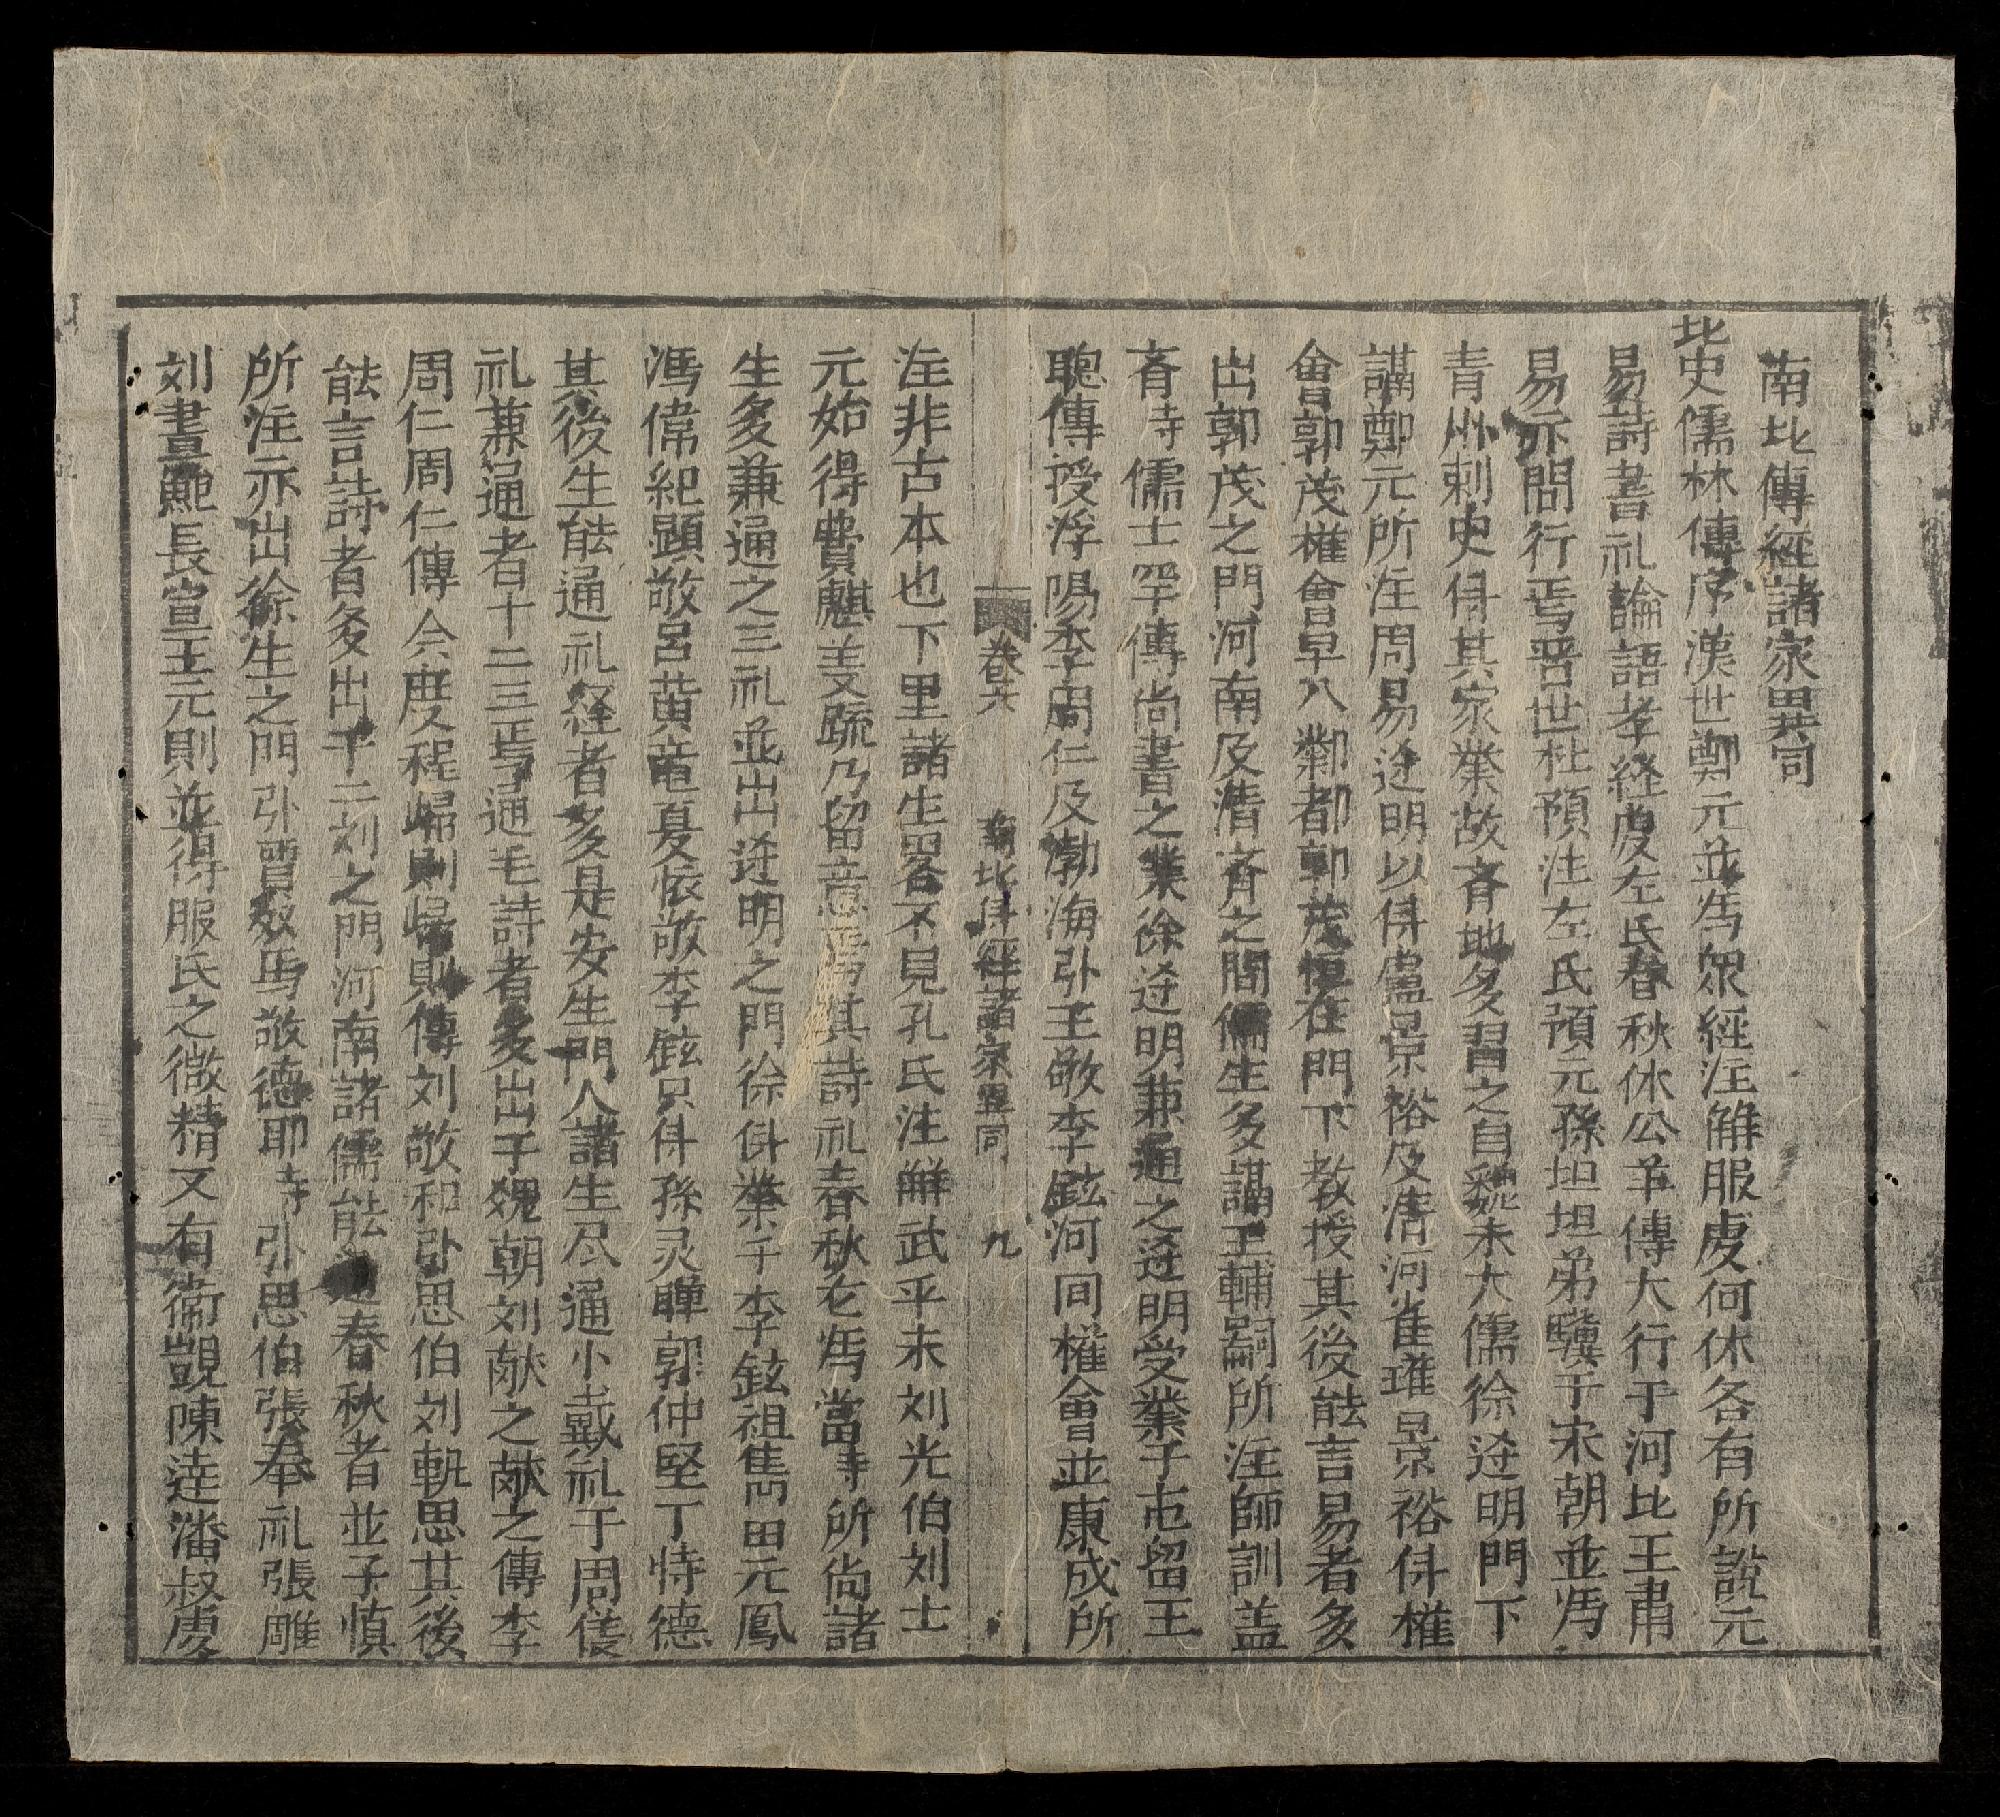 南北傳經諸家異同
北史儒林傳序漢世鄭元並爲衆經注解服虔何休各有所說元
易詩書礼論語孝経虔左氏春秋休公羊傳大行于河北王肅
易亦間行焉晋世杜預注左氏預元孫坦坦弟驥于宋朝並爲
青州刺史传其家業故斉地多習之自魏末大儒徐遵明門下
講鄭元所注周易遵明以传盧景裕及清河崔瑾景裕传權
會郭茂權會早入鄴都郭茂恒在門下教授其後能言易者多
出郭茂之門河南及清斉之間儒生多講王輔嗣所注師訓盖
斉時儒士罕傳尚書之業徐遵明兼通之遵明受業于屯留王
聰傳授浮陽李周仁及渤海张王敬李鉉河间權會並康成所
卷六 南北传經諸家異同 九
注非古本也下里諸生畧不見孔氏注解武平末刘光伯刘士
元始得費甝義疏乃留意焉其詩礼春秋尤爲當時所尚諸
生多兼通之三礼並出遵明之門徐传業于李鉉祖雋田元鳳
馮偉紀顯敬呂黄竜夏懷敬李鉉只传孫灵暉郭仲堅丁恃德
其後生能通礼経者多是安生門人諸生尽通小戴礼于周儀
礼兼通者十二三焉通毛詩者多出于魏朝刘献之献之傳李
周仁周仁傳令度程歸則歸則傳刘敬和张思伯刘軌思其後
能言詩者多出于二刘之門河南諸儒能通春秋者並子慎
所注亦出徐生之門张買奴馬敬德邢寺张思伯張奉礼張雕
刘晝鮑長宣王元則並得服氏之微精又有衛覬陳達潘叔虔